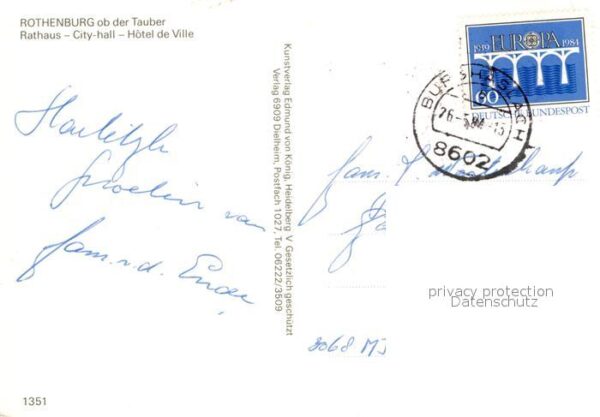 ROTHENBURG ob der Tauber
Rathaus – City-hall – Hôtel de Ville
Hartelijke
Groeten van
fam. v.d. Ende
1351
Kunstverlag Edmund von König, Heidelberg V Gesetzlich geschützt
Verlag 6909 Dielheim, Postfach 1027, Tel. 06222/3509
1949 EUROPA 1984
60
DEUTSCHE BUNDESPOST
BURGHASLACH
8602
fam.
3068 MJ
privacy protection
Datenschutz